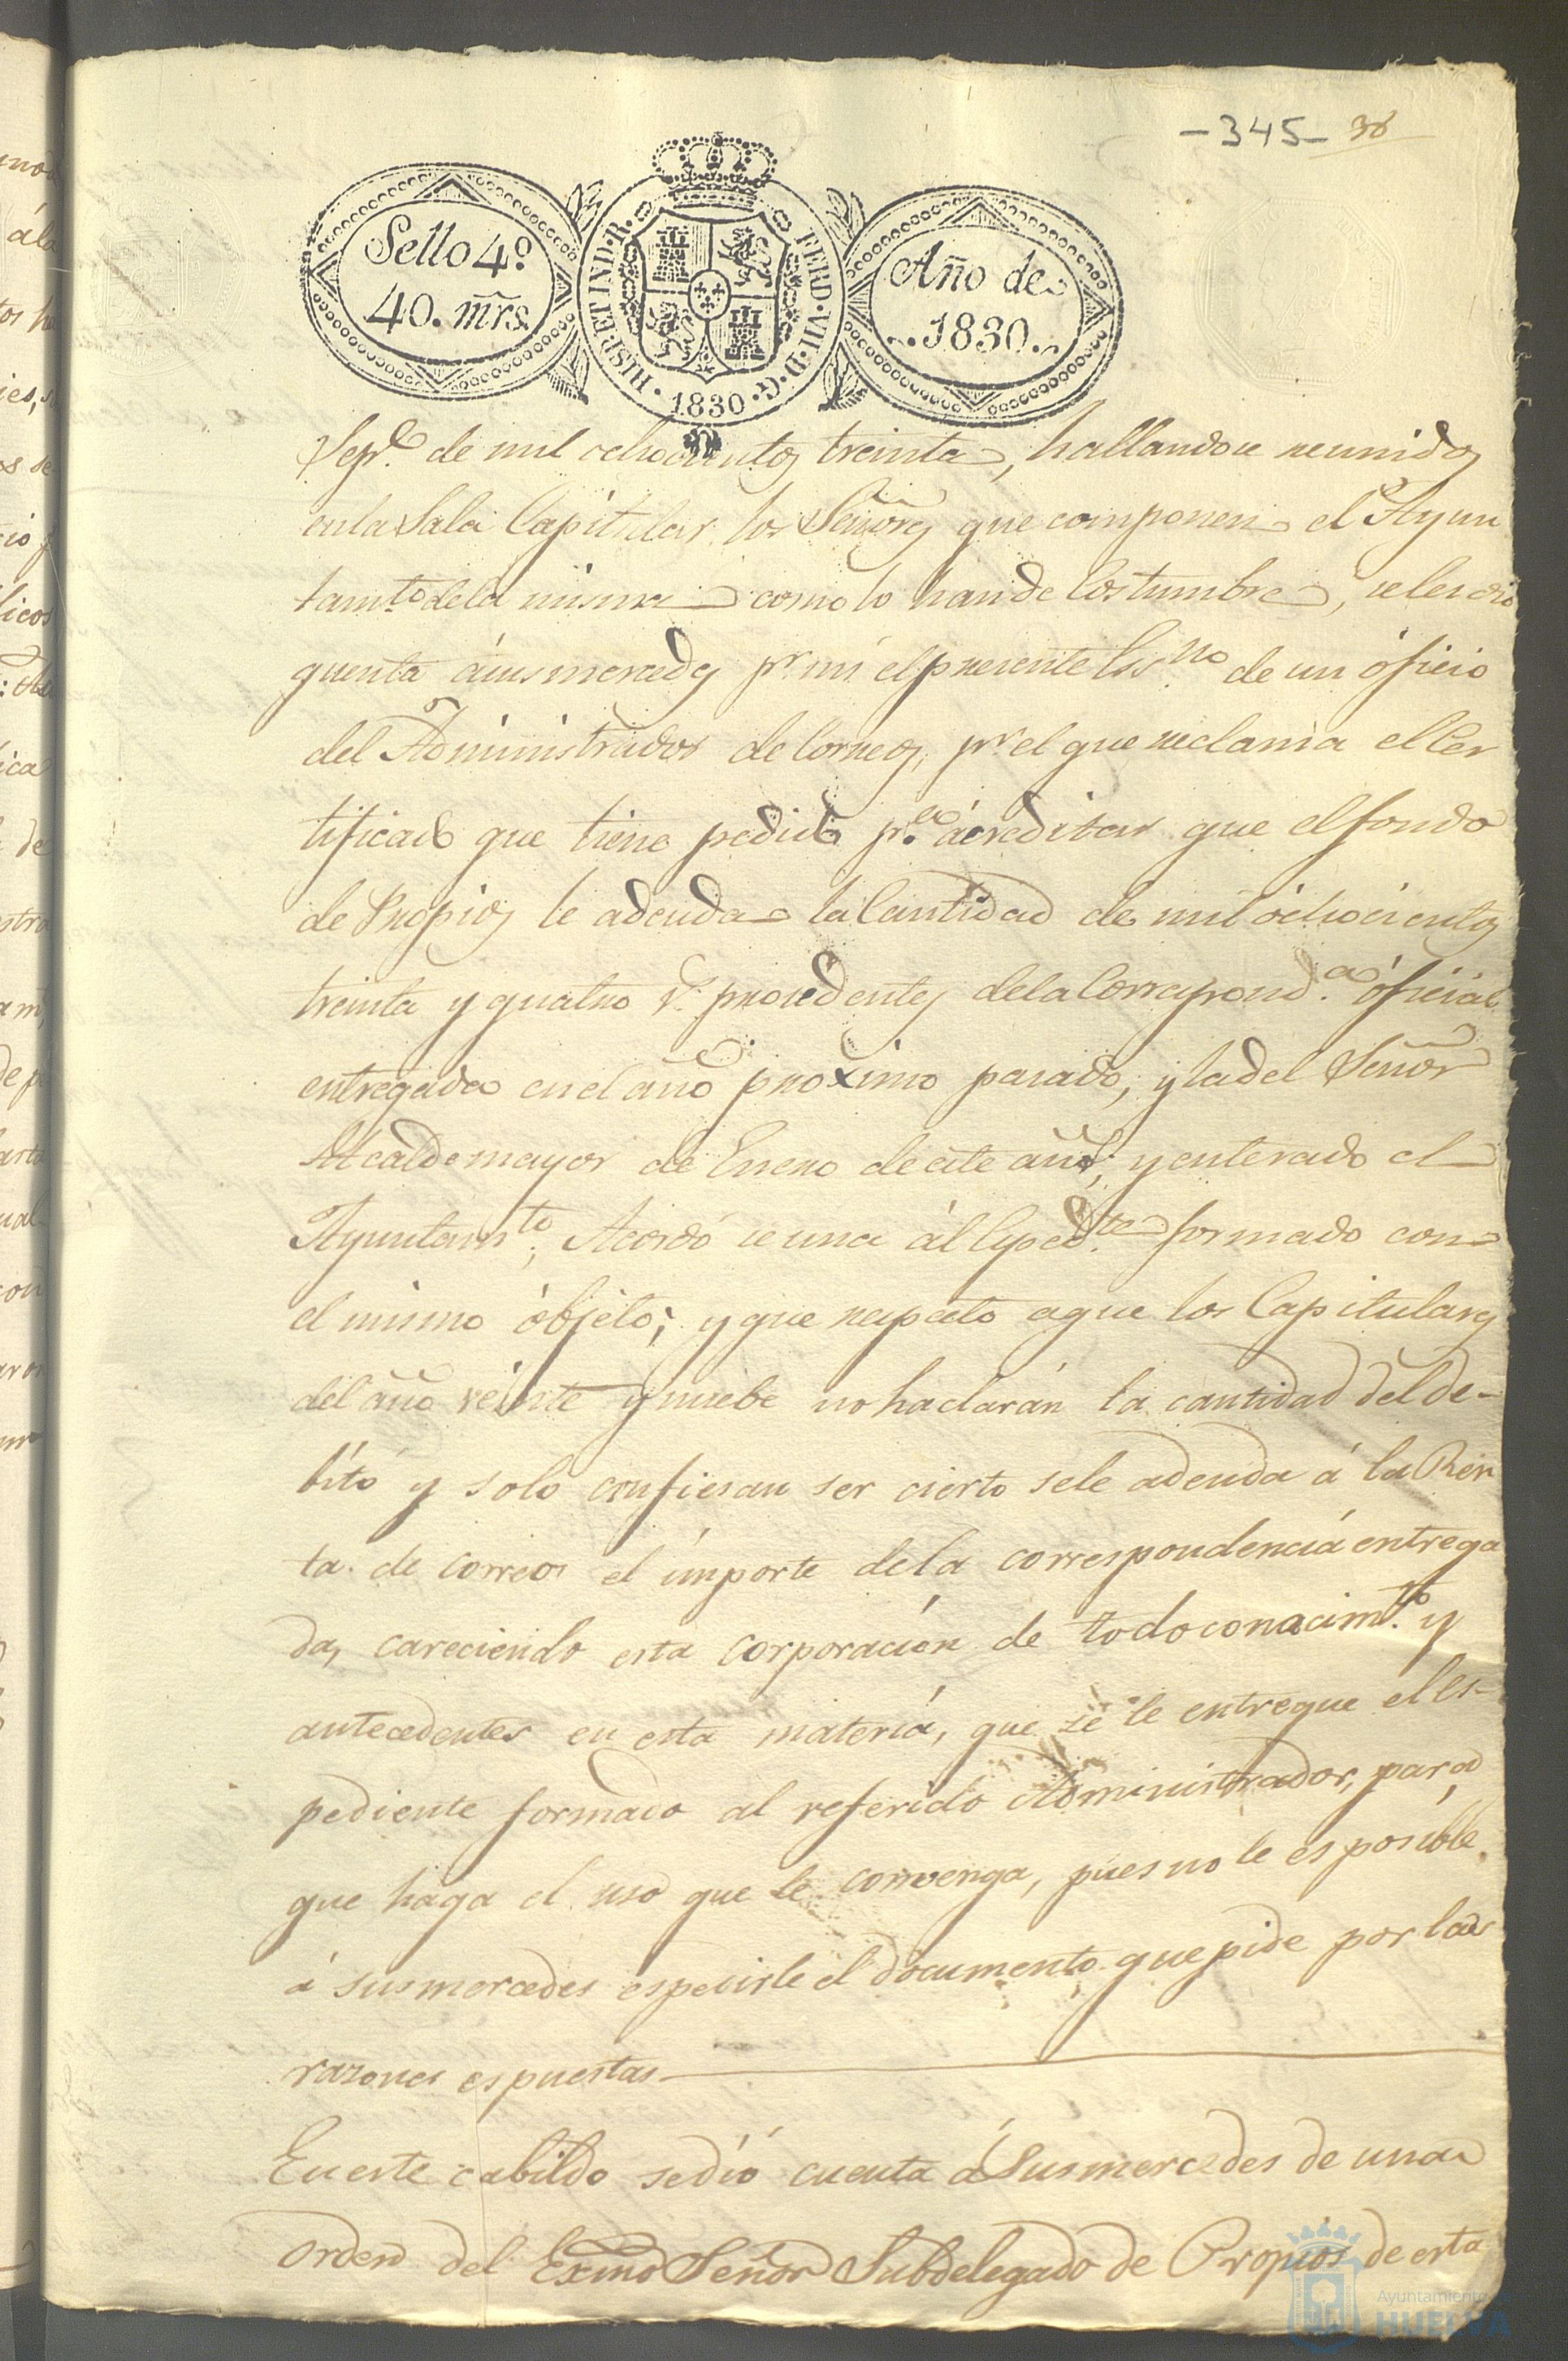 -345- 38
Sello 4.º
40. mrs.
HISP. ET IND. R. FERD. VII. D. G. 1830
Año de
1830.
Sepe. de mil ochocientos treinta, hallandose reunidos
en la Sala Capitular los Señores que componen el Ayun
tamto. dela misma como lo han de Costumbre, se les dió
quenta ásus mercedes pr. mi el presente Essno de un óficio
del Administrador de Correos, pr. el que reclama el Cer
tificado que tiene pedido pa. ácreditar que el fondo
de Propios le adeuda la Cantidad de mil óchocientos
treinta y quatro rs. procedentes dela Correspond.a óficial
entregada en el año proximo pasado, y la del Señor
Alcalde mayor de Enero de este año; y enterado el
Ayuntamto., Acordó se una ál Espedte. formado con
el mismo óbjeto; y que respecto a que los Capitulares
del año véinte y nuebe no haclarán la cantidad del de-
bito y solo confiesan ser cierto sele adeuda á la Ren
ta de correos el importe dela correspondencia entrega
da, careciendo esta corporacion de todo conacimto. y
antecedentes en esta materia, que se le entregue el es-
pediente formado al referido Administrador, para
que haga el uso que le convenga, pues no le es posible
á sus mercedes espedirle el documento que pide por las
razones espuestas
En este cabildo sedió cuenta á Sus mercedes de una
orden del Exmo Señor Subdelegado de Propios de esta
Ayuntamiento de
HUELVA